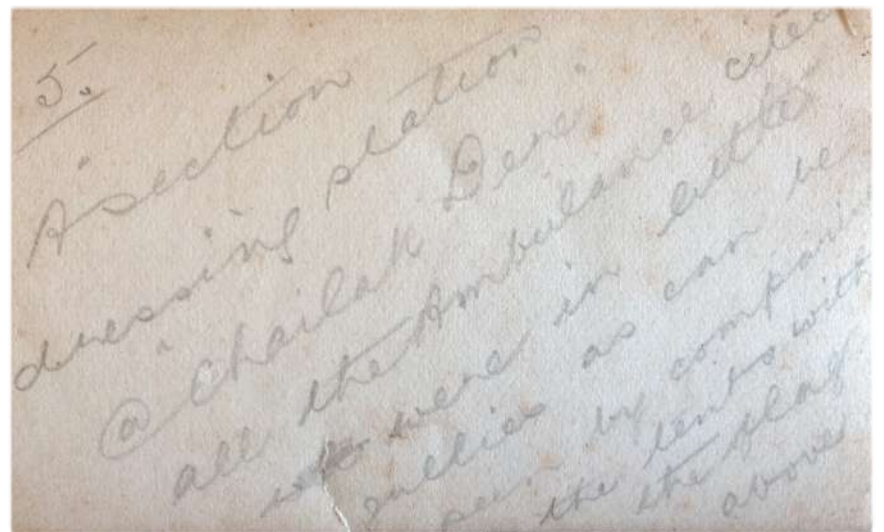 5.
A section
dressing station
@ Chailak Dere.
all the Ambulance
were in little
gullies as can be
seen by comparing
the tents with
the flag
above